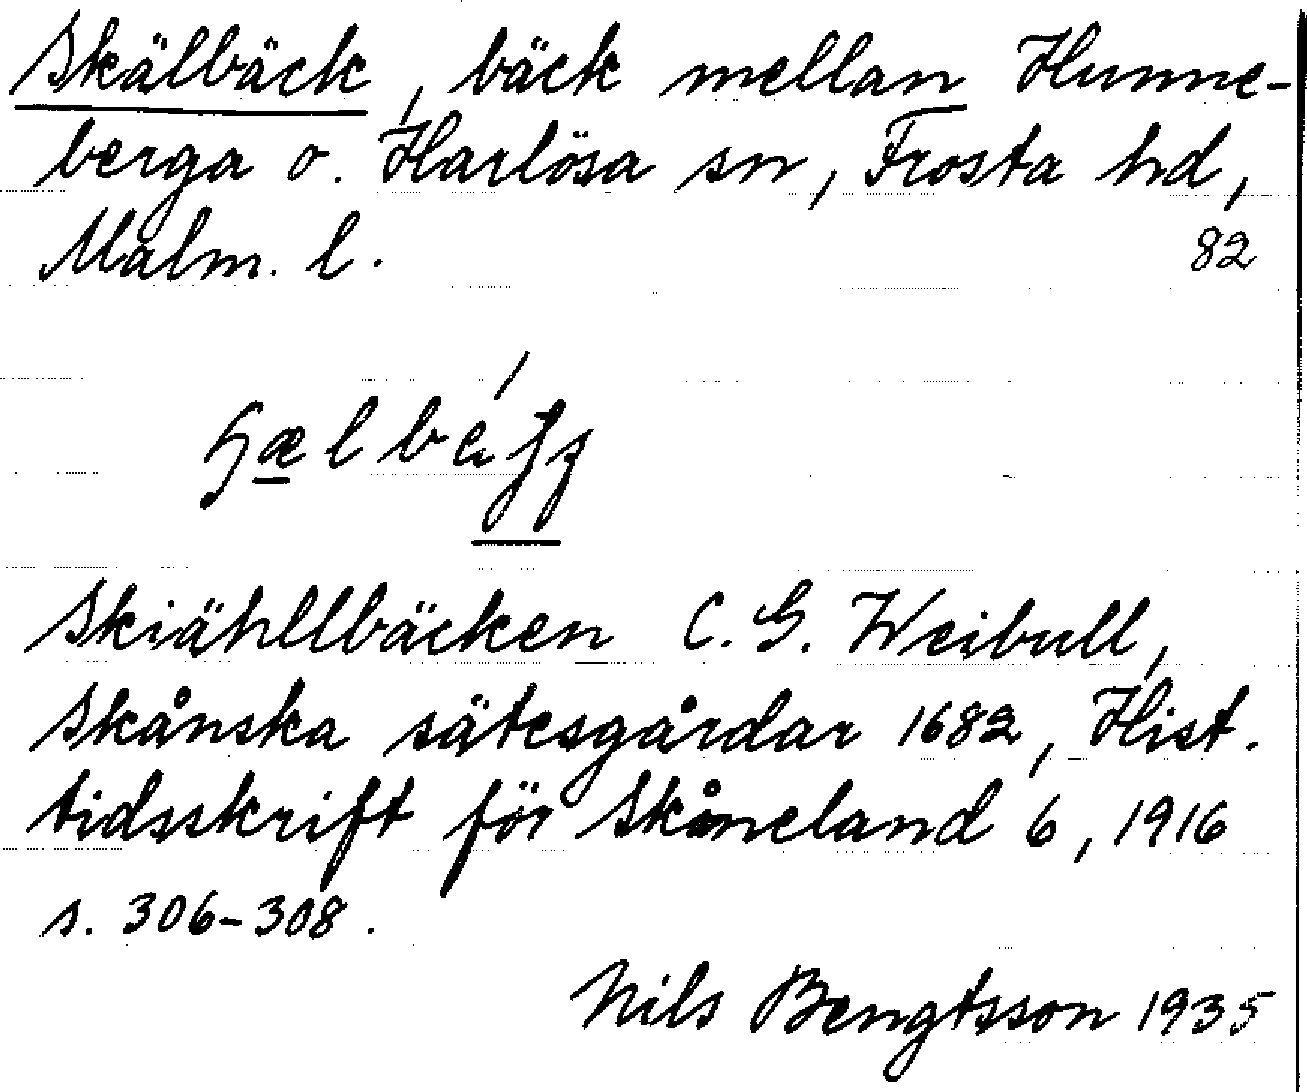 Skälbäck, bäck mellan Hunne-
berga o. Harlösa sn, Frosta hd,
Malm. l. 82
Skiähllbäcken C. G. Weibull,
Skånska sätesgårdar 1682, Hist.
tidsskrift för Skåneland 6, 1916
s. 306-308.
Nils Bengtsson 1935